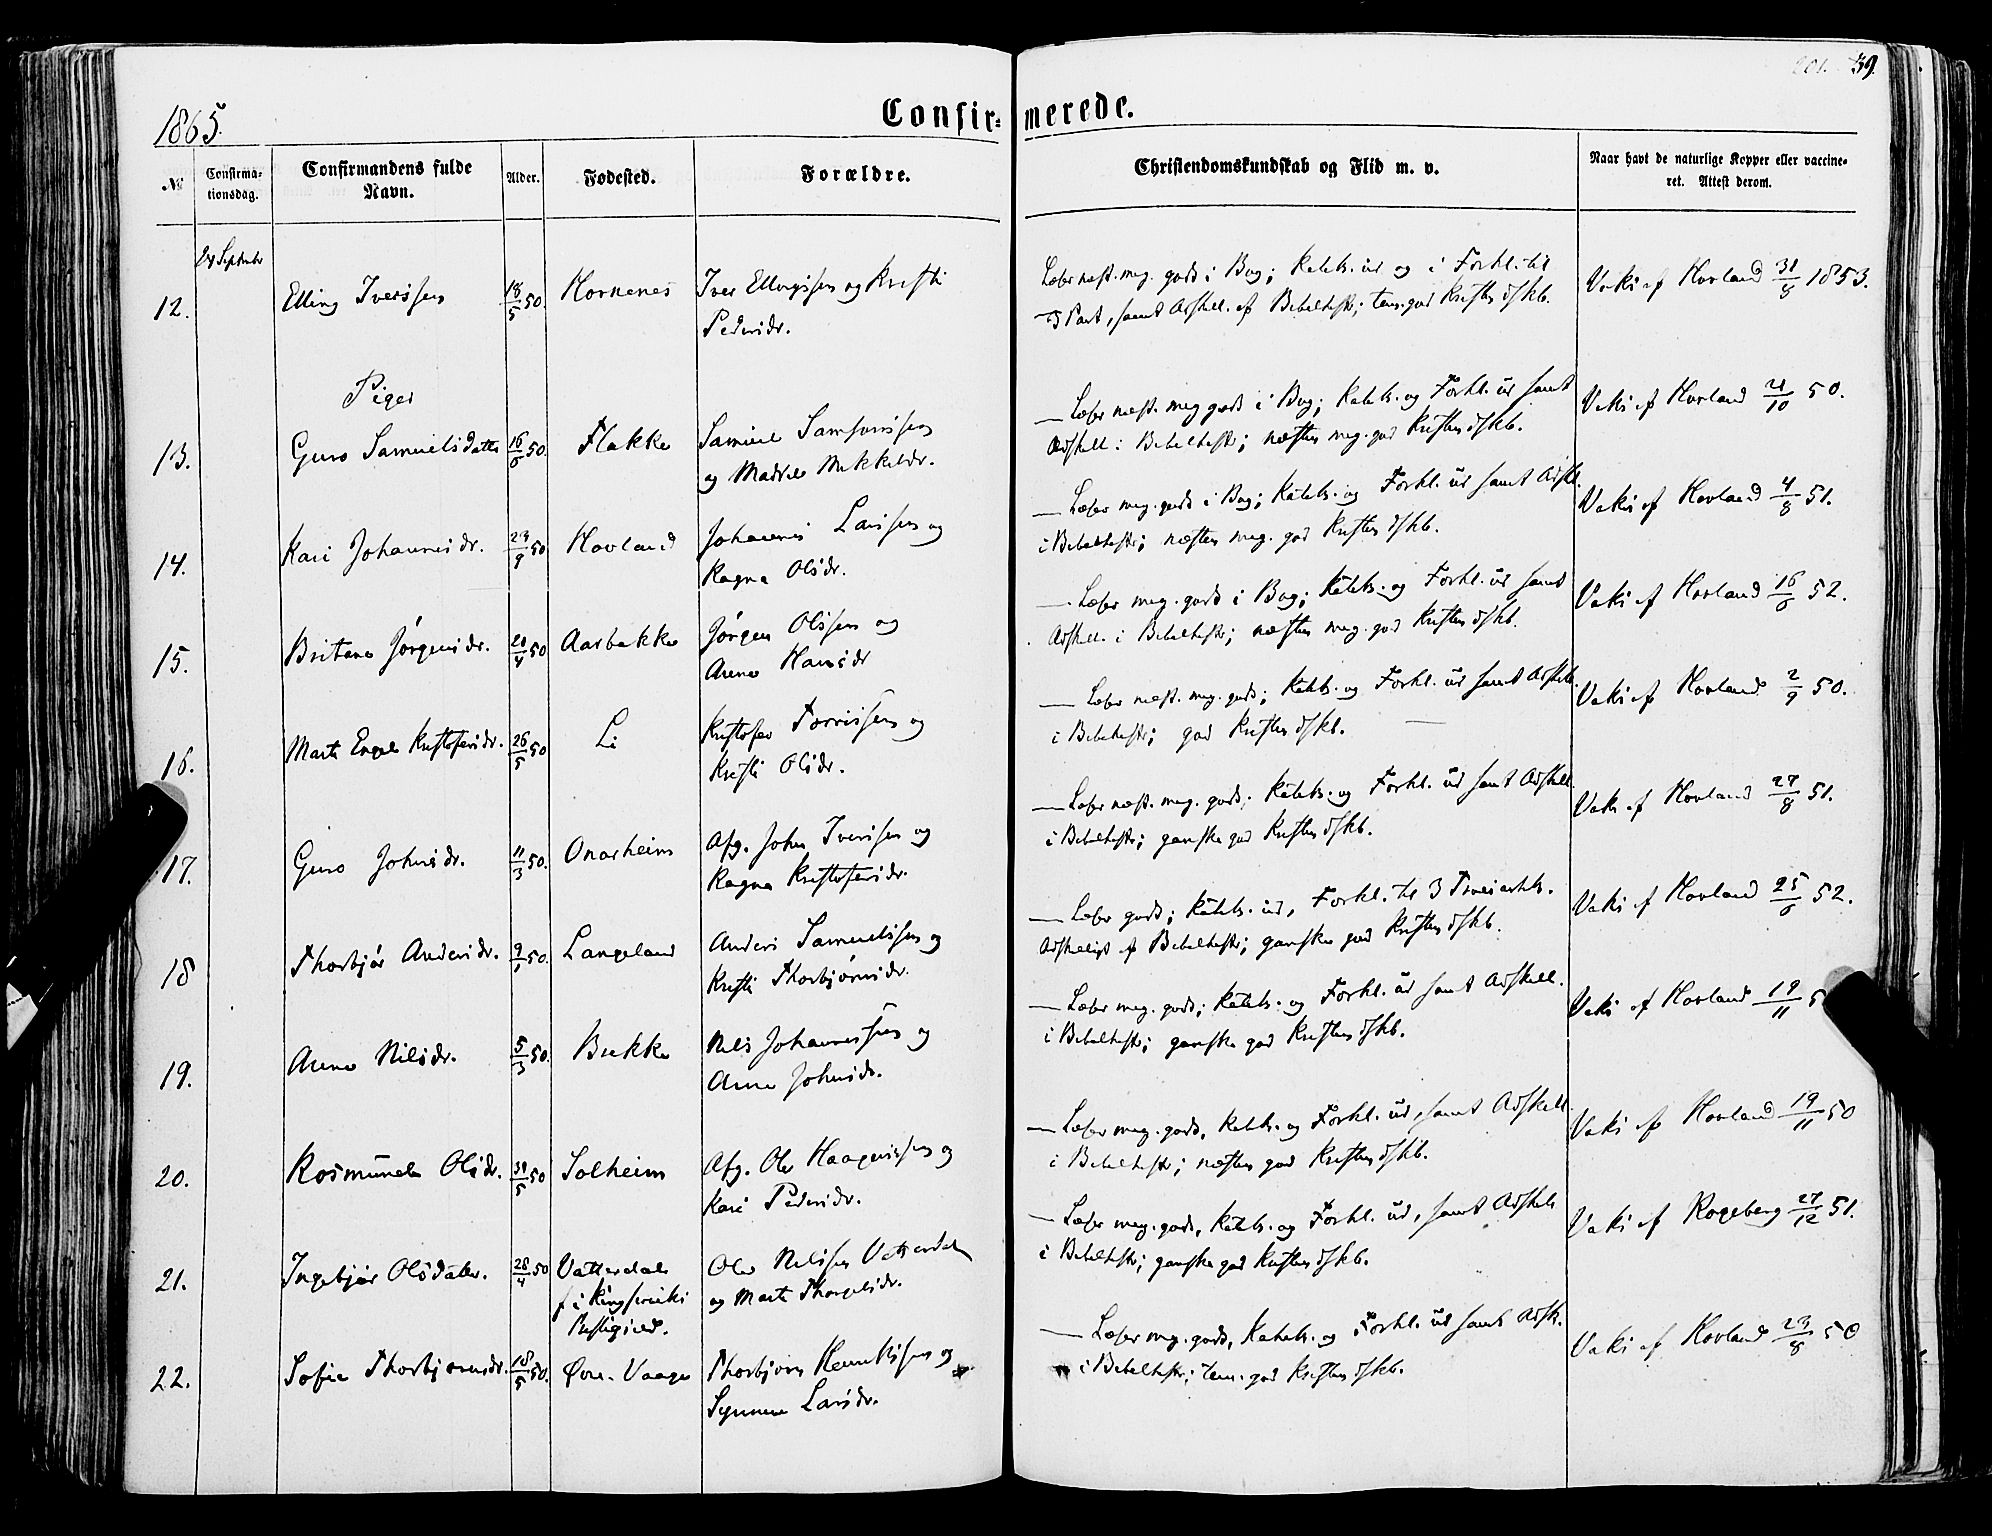 201. 59.
Confir- merede.
1865.
№
Confirma-
tionsdag.
Confirmandens fulde
Navn.
Alder.
Fødested.
Forældre.
Christendomskundskab og Flid m. v.
Naar havt de naturlige Kopper eller vaccine-
ret. Attest derom.
24 September
12. Elling Iverssen 18/5 50 Hornenes Iver Ellingssen og Kristi
Pedersdr.
Læser næst. meg. godt i Bog; Katek. ud og i Forkl. til
3 Part, samt Adskill. af Bibelhist; tem. god Kristendskb.
Vaks af Hovland 31/8 1853.
Piger
13. Guro Samuelsdatter 16/6 50. Flakke Samuel Samsonssen
og Madele Mikkelsdr.
— Læser næst. meg godt i Bog; Katek. og Forkl. ud samt
Adskill. i Bibelhist; næsten meg. god Kristendskb.
Vaks af Hovland 21/10 50.
14. Kari Johannesdr. 23/9 50 Hovland Johannes Larssen og
Ragna Olsdr.
— Læser meg. godt i Bog; Katek. og Forkl. ud samt Adskl.
i Bibelhist; næsten meg. god Kristendskb.
Vaks af Hovland 4/8 51.
15. Britane Jørgensdr. 20/4 50 Aarbakke Jørgen Olssen og
Anna Hansdr
— Læser meg. godt i Bog; Katek. og Forkl. ud samt
Adskill. i Bibelhist; næsten meg. god Kristendskb.
Vaks af Hovland 16/6 52.
16. Marta Engel Kristofersdr. 26/5 50 Li Kristofer Torrissen og
Kristi Olsdr.
— Læser næst. meg. godt; Katek. og Forkl. ud samt Adskil.
i Bibelhist; god Kristendskb.
Vaks af Hovland 2/9 50.
17. Guro Johnsdr. 11/3 50. Onarheim Afg. John Iverssen og
Ragna Kristofersdr.
— Læser næst. meg. godt; Katek. og Forkl. ud samt Adskill.
i Bibelhist; ganske god Kristendskb.
Vaks af Hovland 27/8 51.
18 Thorbjør Andersdr. 9/1 50. Langeland Anders Samuelssen og
Kristi Thorbjørnsdr.
— Læser godt; Katek. ud, Forkl. til 3 Troesartk.
Adskilligt af Bibelhist; ganske god Kristendskb.
Vaks af Hovland 25/6 52.
19. Anna Nilsdr. 5/3 50. Bakke Nils Johannessen og
Anna Johnsdr.
— Læser meg. godt; Katek. og Forkl. ud samt Adskill.
i Bibelhist; ganske god Kristendskb.
Vaks af Hovland 19/11 5
20. Rosmunda Olsdr. 31/5 50 Solheim Afg. Ole Haagenssen og
Kari Pedersdr.
— Læser meg. godt, Katek. og Forkl. ud, samt Adskill.
i Bibelhist; næsten god Kristendskb.
Vaks af Hovland 19/11 50
21. Ingebjør Olsdatter. 28/4 50 Vatterdal
f i Kingservik
Prestegjeld.
Ole Nilssen Vatterdal
og Marta Thorgelsdr.
— Læser meg. godt, Katek. og Forkl. ud, samt Adskil.
i Bibelhist; ganske god Kristendskb.
Vaks af Rogeberg 27/12 51.
22. Sofie Thorbjørnsdr. 18/5 50. Øvre-Vaage Thorbjørn Henrikssen og
Synneva Larsdr.
— Læser meg. godt, Katek. og Forkl. ud samt Adsk.
i Bibelhist; tem. god Kristendskb.
Vaks af Hovland 23/8 50